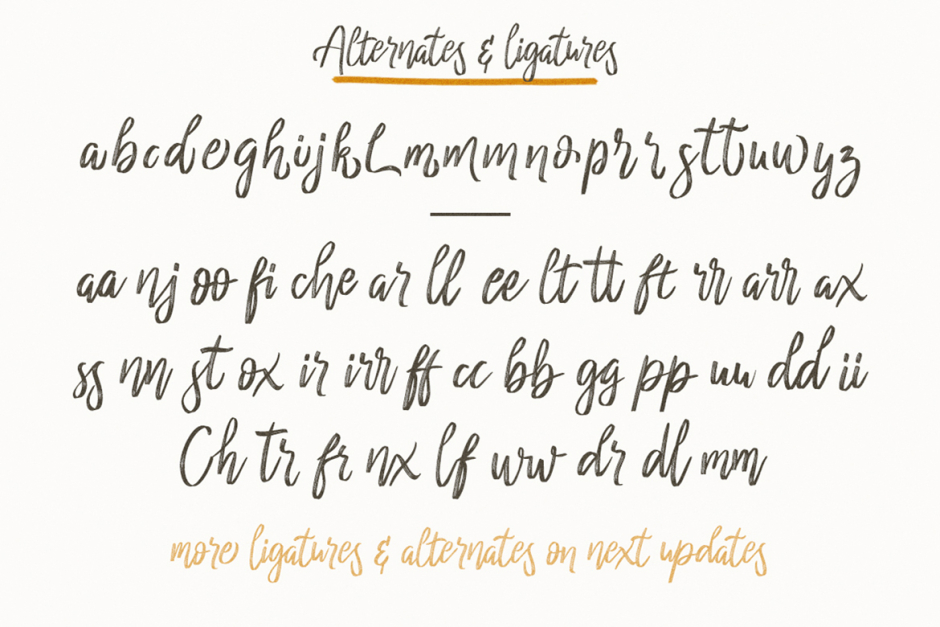 Alternates & ligatures
a b c d e g h i j k L m m m n o p r r s t t u w y z
aa nj oo fi che ar ll ee lt tt ft rr arr ax
ss nn st ox ir irr ff cc bb gg pp uu dd ii
Ch tr fr nx lf ww dr dl mm
more ligatures & alternates on next updates